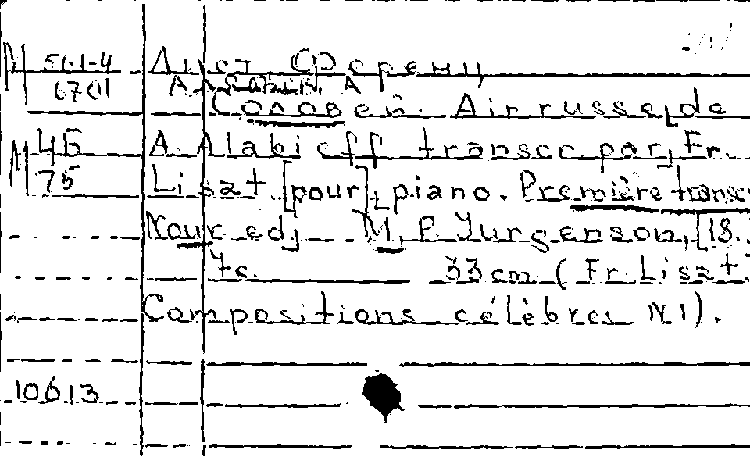 М 561-4 Лист Ференц
6701 Алябьев, А
Соловей. Air russe, de
М 46 A. Alabieff transcr. par, Fr.
75 Liszt [pour], piano. Première transc
Nouv edj M, P. Jurgenson, [18.
7 с. 33 cm ( Fr. Liszt
Compositions célèbres N1).
10613